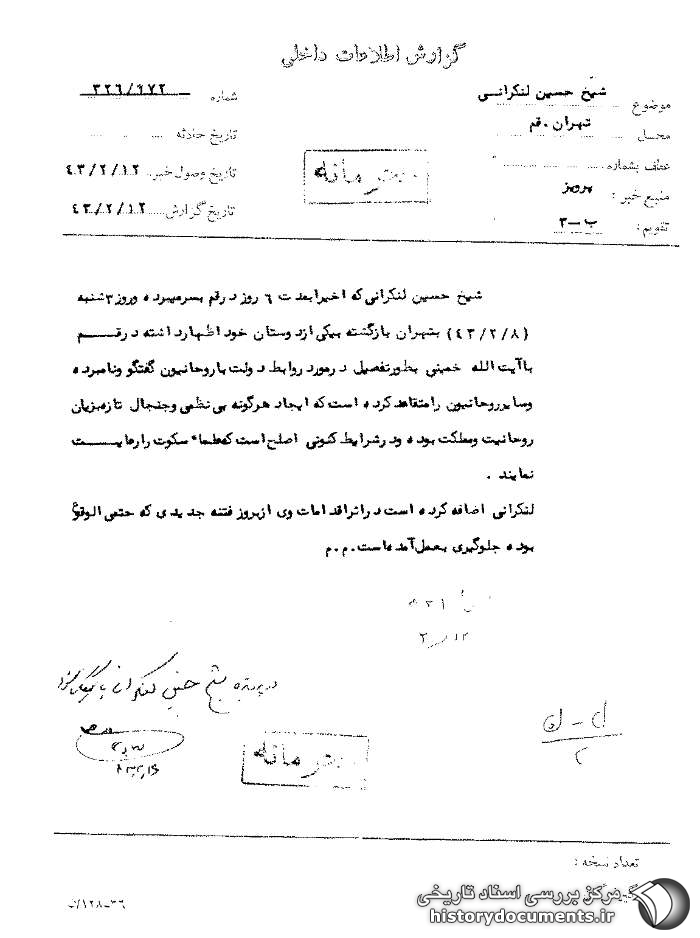 گزارش اطلاعات داخلی
موضوع شیخ حسین لنکرانی
محل تهران . قم
عطف بشماره
منبع خبر : پرویز
تقویم : ب-۳
شماره ۳۲۶/۹۷۲
تاریخ حادثه
تاریخ وصول خبر ۴۳/۲/۱۲
تاریخ گزارش ۴۳/۲/۱۲
محرمانه
شیخ حسین لنکرانی که اخیرا بمدت ۶ روز در قم بسر میبرده و روز ۳ شنبه
(۴۳/۲/۸) بتهران بازگشته بیکی از دوستان خود اظهار داشته در قم
با آیت الله خمینی بطور تفصیل در مورد روابط دولت با روحانیون گفتگو و نامبرده
و سایر روحانیون را متقاعد کرده است که ایجاد هرگونه بی نظمی و جنجال تازه بزیان
روحانیت و مملکت بوده و در شرایط کنونی اصلح است که طماء سکوت را رعایت
نمایند .
لنکرانی اضافه کرده است در اثر اقدامات وی از بروز فتنه جدیدی که حتمی الوقوع
بوده جلوگیری بعمل آمده است . م . م
۳۲۱
۲/۱۲
در پرونده شیخ حسین لنکرانی بایگانی شود
محرمانه
ل - ن
۲
تعداد نسخه :
۱۲۸-۳۶/
مرکز بررسی اسناد تاریخی
historydocuments.ir